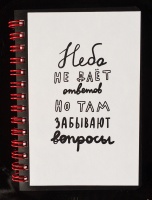 Небо
НЕ ДАЁТ
ответов
НО ТАМ
ЗАБЫВАЮТ
вопросы